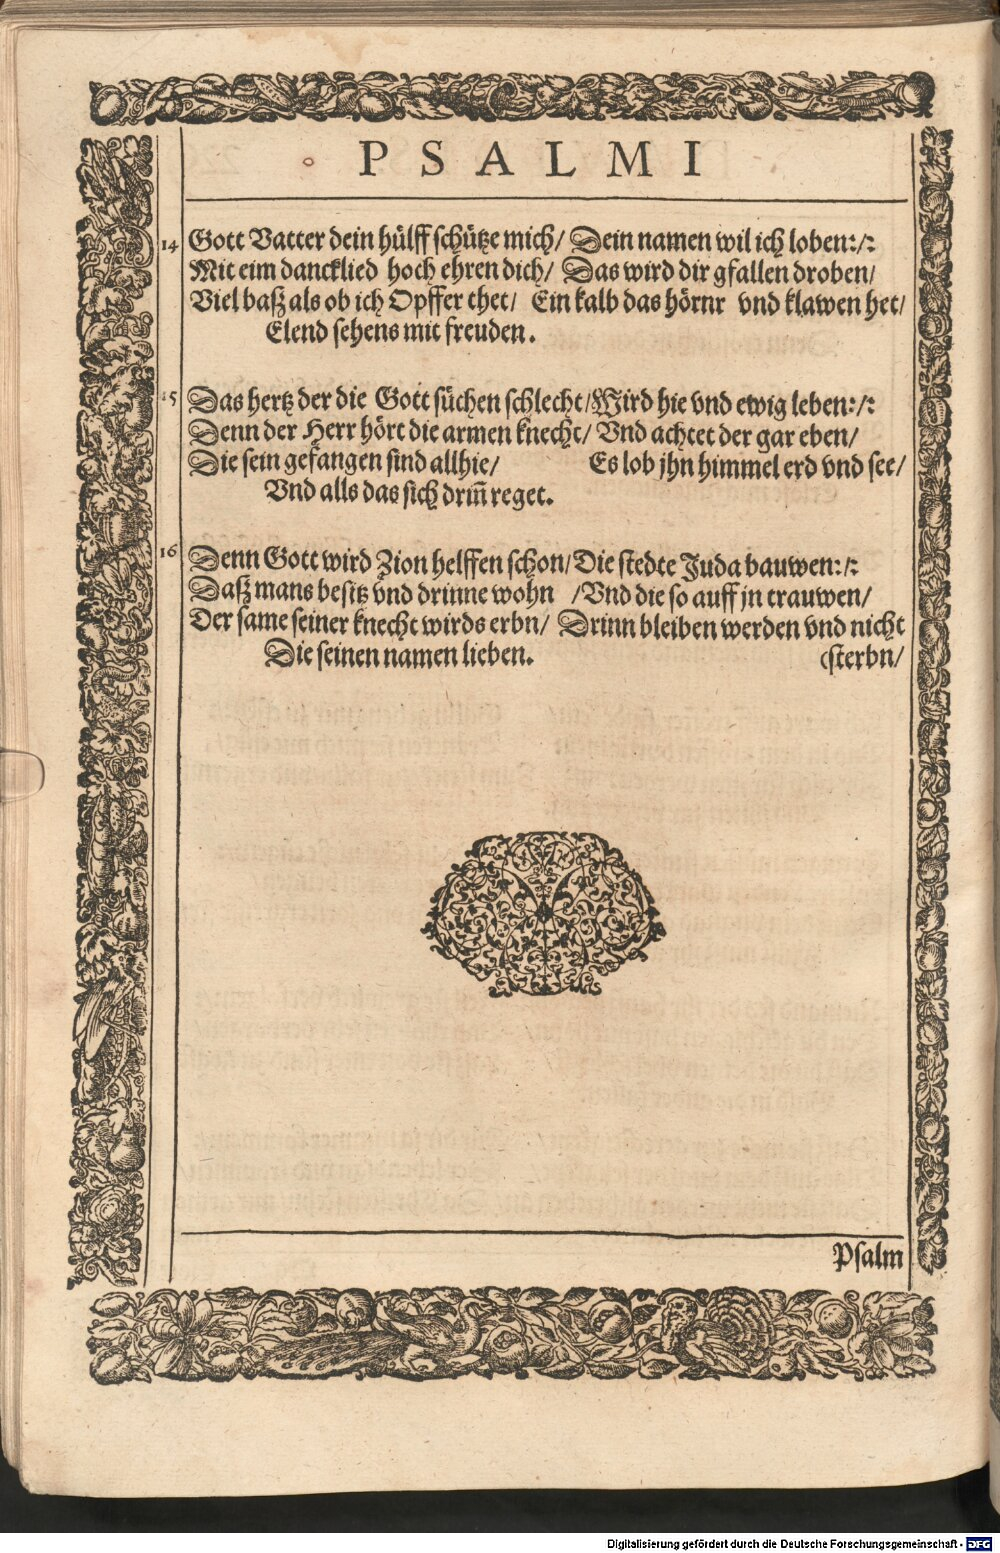 PSALMI
14 Gott Vatter dein hülff schütze mich/ Dein namen wil ich loben:/:
Mit eim dancklied hoch ehren dich/ Das wird dir gfallen droben/
Viel baß als ob ich Opffer thet/ Ein kalb das hörnr vnd klawen het/
Elend sehens mit freuden.
15 Das hertz der die Gott süchen schlecht/ Wird hie vnd ewig leben:/:
Denn der Herr hört die armen knecht/ Vnd achtet der gar eben/
Die sein gefangen sind allhie/ Es lob jhn himmel erd vnd see/
Vnd alls das sich driñ reget.
16 Denn Gott wird Zion helffen schon/ Die stedte Juda bauwen:/:
Daß mans besitz vnd drinne wohn /Vnd die so auff jn trauwen/
Der same seiner knecht wirds erbn/ Drinn bleiben werden vnd nicht
Die seinen namen lieben. (sterbn/
Psalm
Digitalisierung gefördert durch die Deutsche Forschungsgemeinschaft - DFG